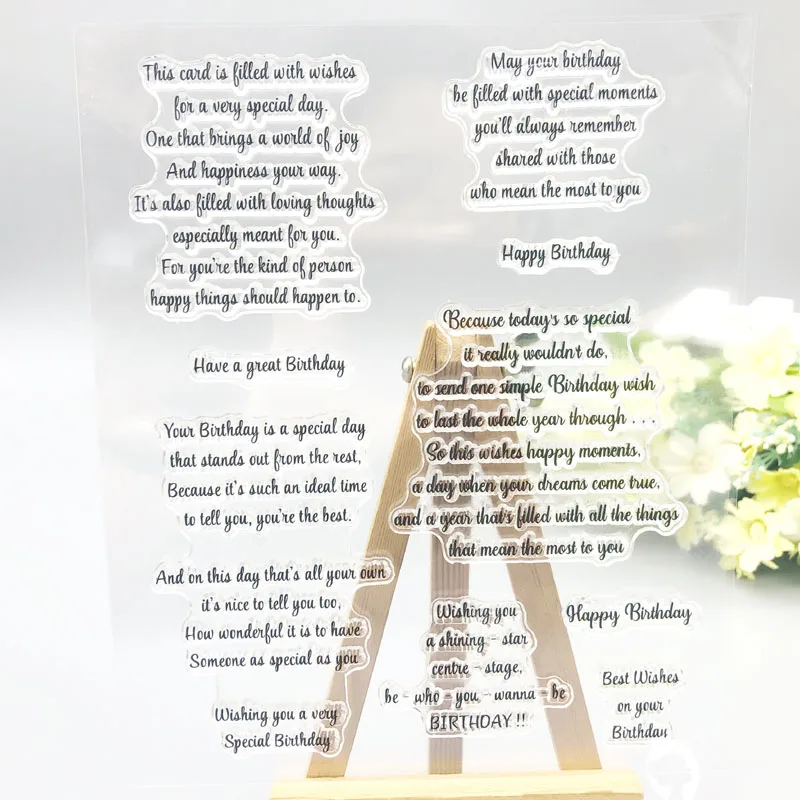 This card is filled with wishes
for a very special day.
One that brings a world of joy
And happiness your way.
It's also filled with loving thoughts
especially meant for you.
For you're the kind of person
happy things should happen to.
Have a great Birthday
Your Birthday is a special day
that stands out from the rest,
Because it's such an ideal time
to tell you, you're the best.
And on this day that's all your own
it's nice to tell you too,
How wonderful it is to have
Someone as special as you
Wishing you a very
Special Birthday
May your birthday
be filled with special moments
you'll always remember
shared with those
who mean the most to you
Happy Birthday
Because today's so special
it really wouldn't do,
to send one simple Birthday wish
to last the whole year through . . .
So this wishes happy moments,
a day when your dreams come true,
and a year that's filled with all the things
that mean the most to you
Wishing you
a shining - star
centre - stage,
be - who - you - wanna - be
BIRTHDAY !!
Happy Birthday
Best Wishes
on your
Birthday